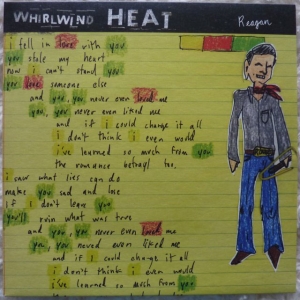 WHIRLWIND HEAT
Reagan
i fell in love with you
you stole my heart
now i can't stand you
you love someone else
and you, you never even loved me
you, you never even liked me
and if i could change it all
i don't think i even would
i've learned so much from you
the romance betrayl too.
i saw what lies can do
make you sad and lose
if I don't leave you
you'll ruin what was true
and you, you never even loved me
you, you never even liked me
and if i could change it all
i don't think i even would
i've learned so much from you